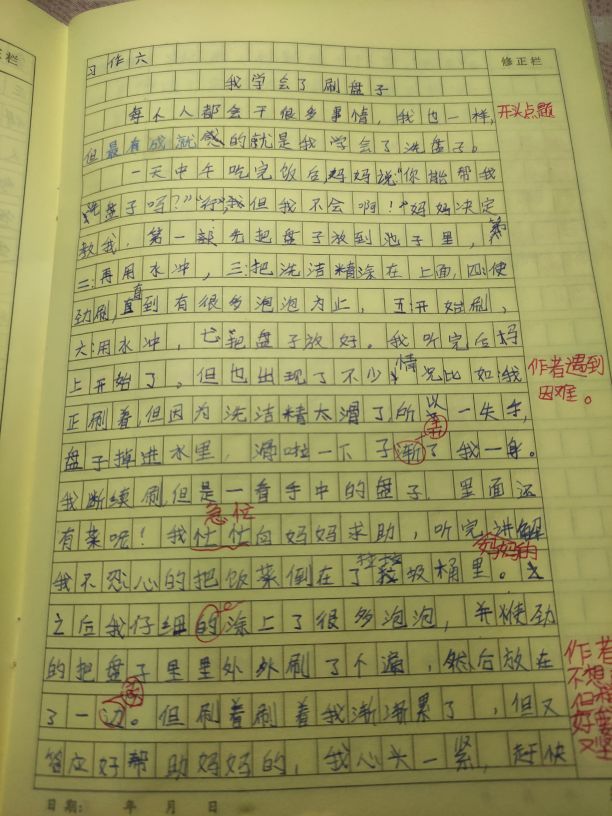 正栏
修正栏
习作六
我学会了刷盘子
每个人都会干很多事情，我也一样，
开头点题
但最有成就感的就是我学会了洗盘子。
一天中午吃完饭后，妈妈说："你能帮我
洗盘子吗？""行，我但我不会啊！"妈妈决定
教我。第一 先把盘子放到池子里，第
二：再用水冲，三：把洗洁精涂在上面，四：使
劲刷，直到有很多泡泡为止，五：开始刷，
六：用水冲，七：把盘子放好。我听完后妈
上开始了。但也出现了不少情况比如：我
作者遇到
困难。
正刷着，但因为洗洁精太滑了，所以 一失手，
弄
盘子掉进水里，滑啦一下子渐了我一身。
我断续刷，但是一看手中的盘子，里面还
急忙
有菜呢！我忙忙向妈妈求助，听完讲解
妈妈的
我不忍心的把饭菜倒在了垃圾桶里。
之后我仔细的涂上了很多泡泡，并使劲
的把盘子里里外外刷了个遍，然后放在
作者
不想
了一边。但刷着刷着我渐渐累了，但又
答应好帮助妈妈的，我心头一紧，赶快
又坚
日期： 年 月 日